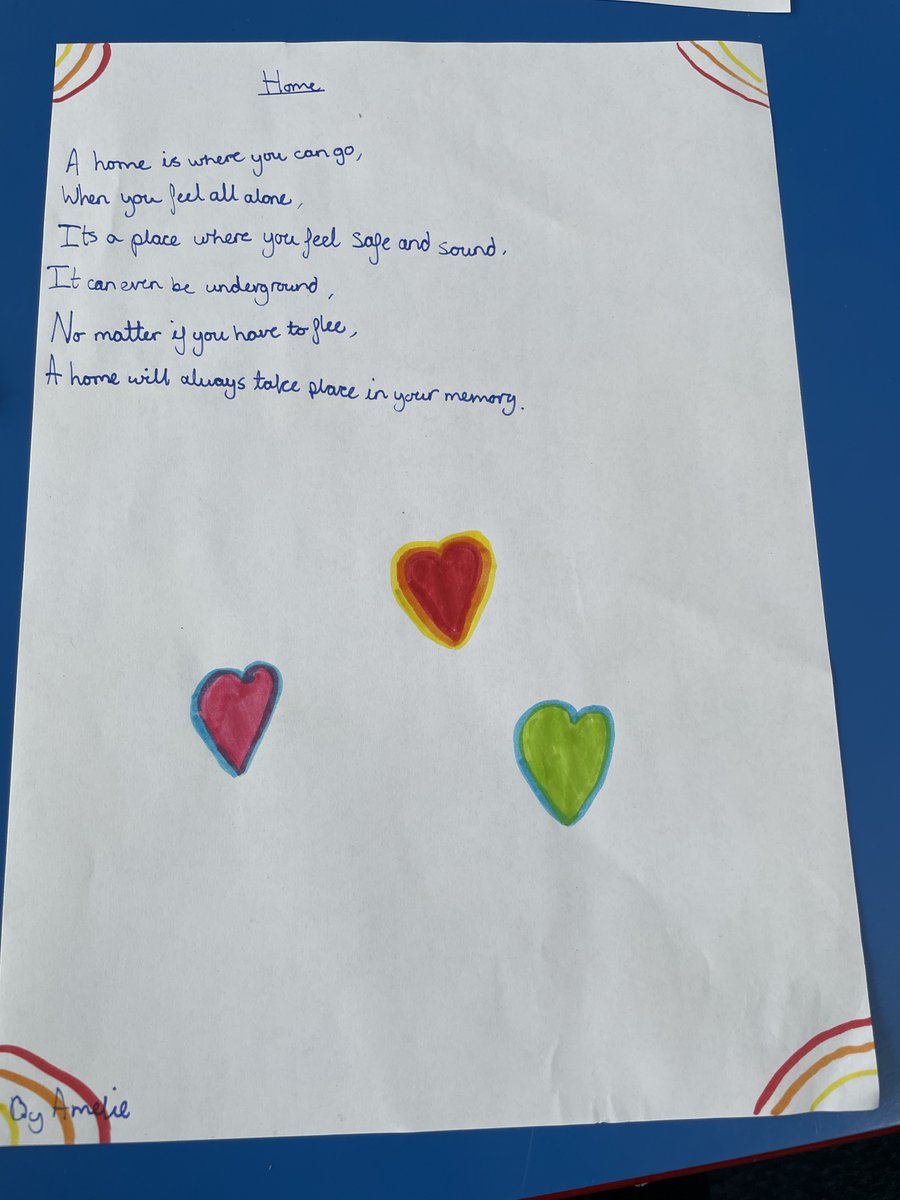 Home
A home is where you can go,
When you feel all alone,
Its a place where you feel safe and sound.
It can even be underground,
No matter if you have to flee,
A home will always take place in your memory.
By Amelie